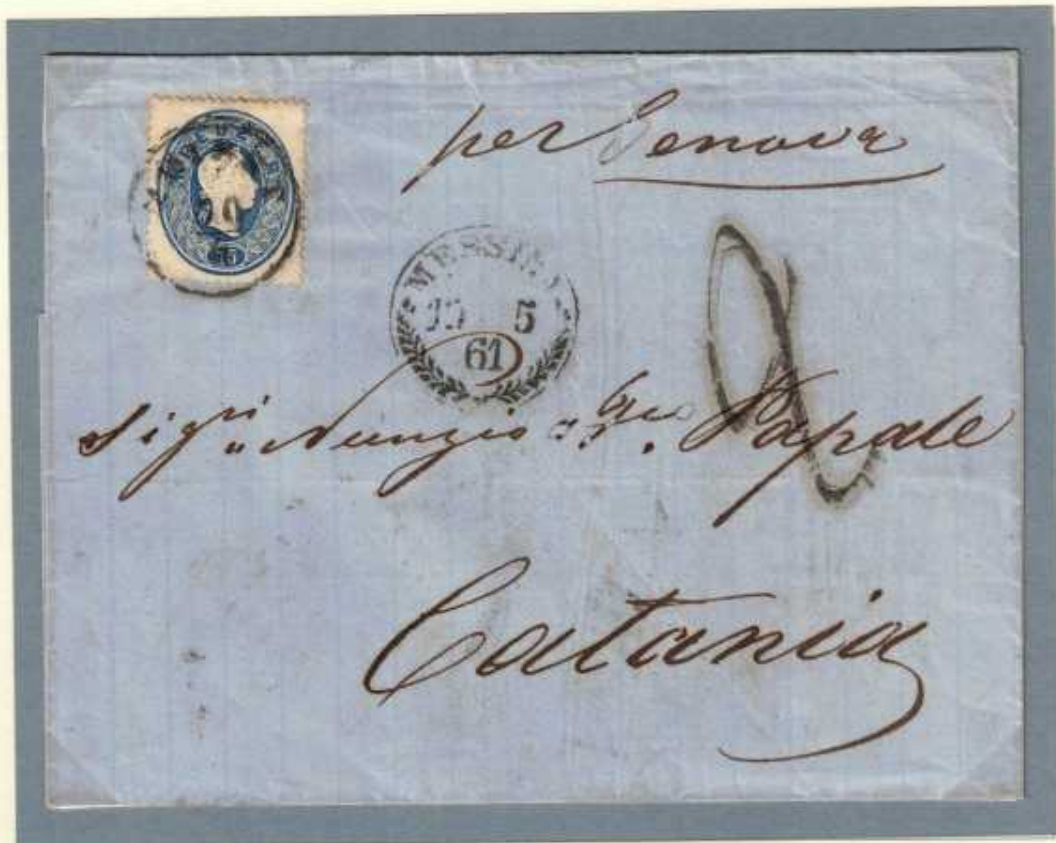 per Genova
15
20
MESSINA
15 5
61
2
Sigri Nunzio Papale
Catania